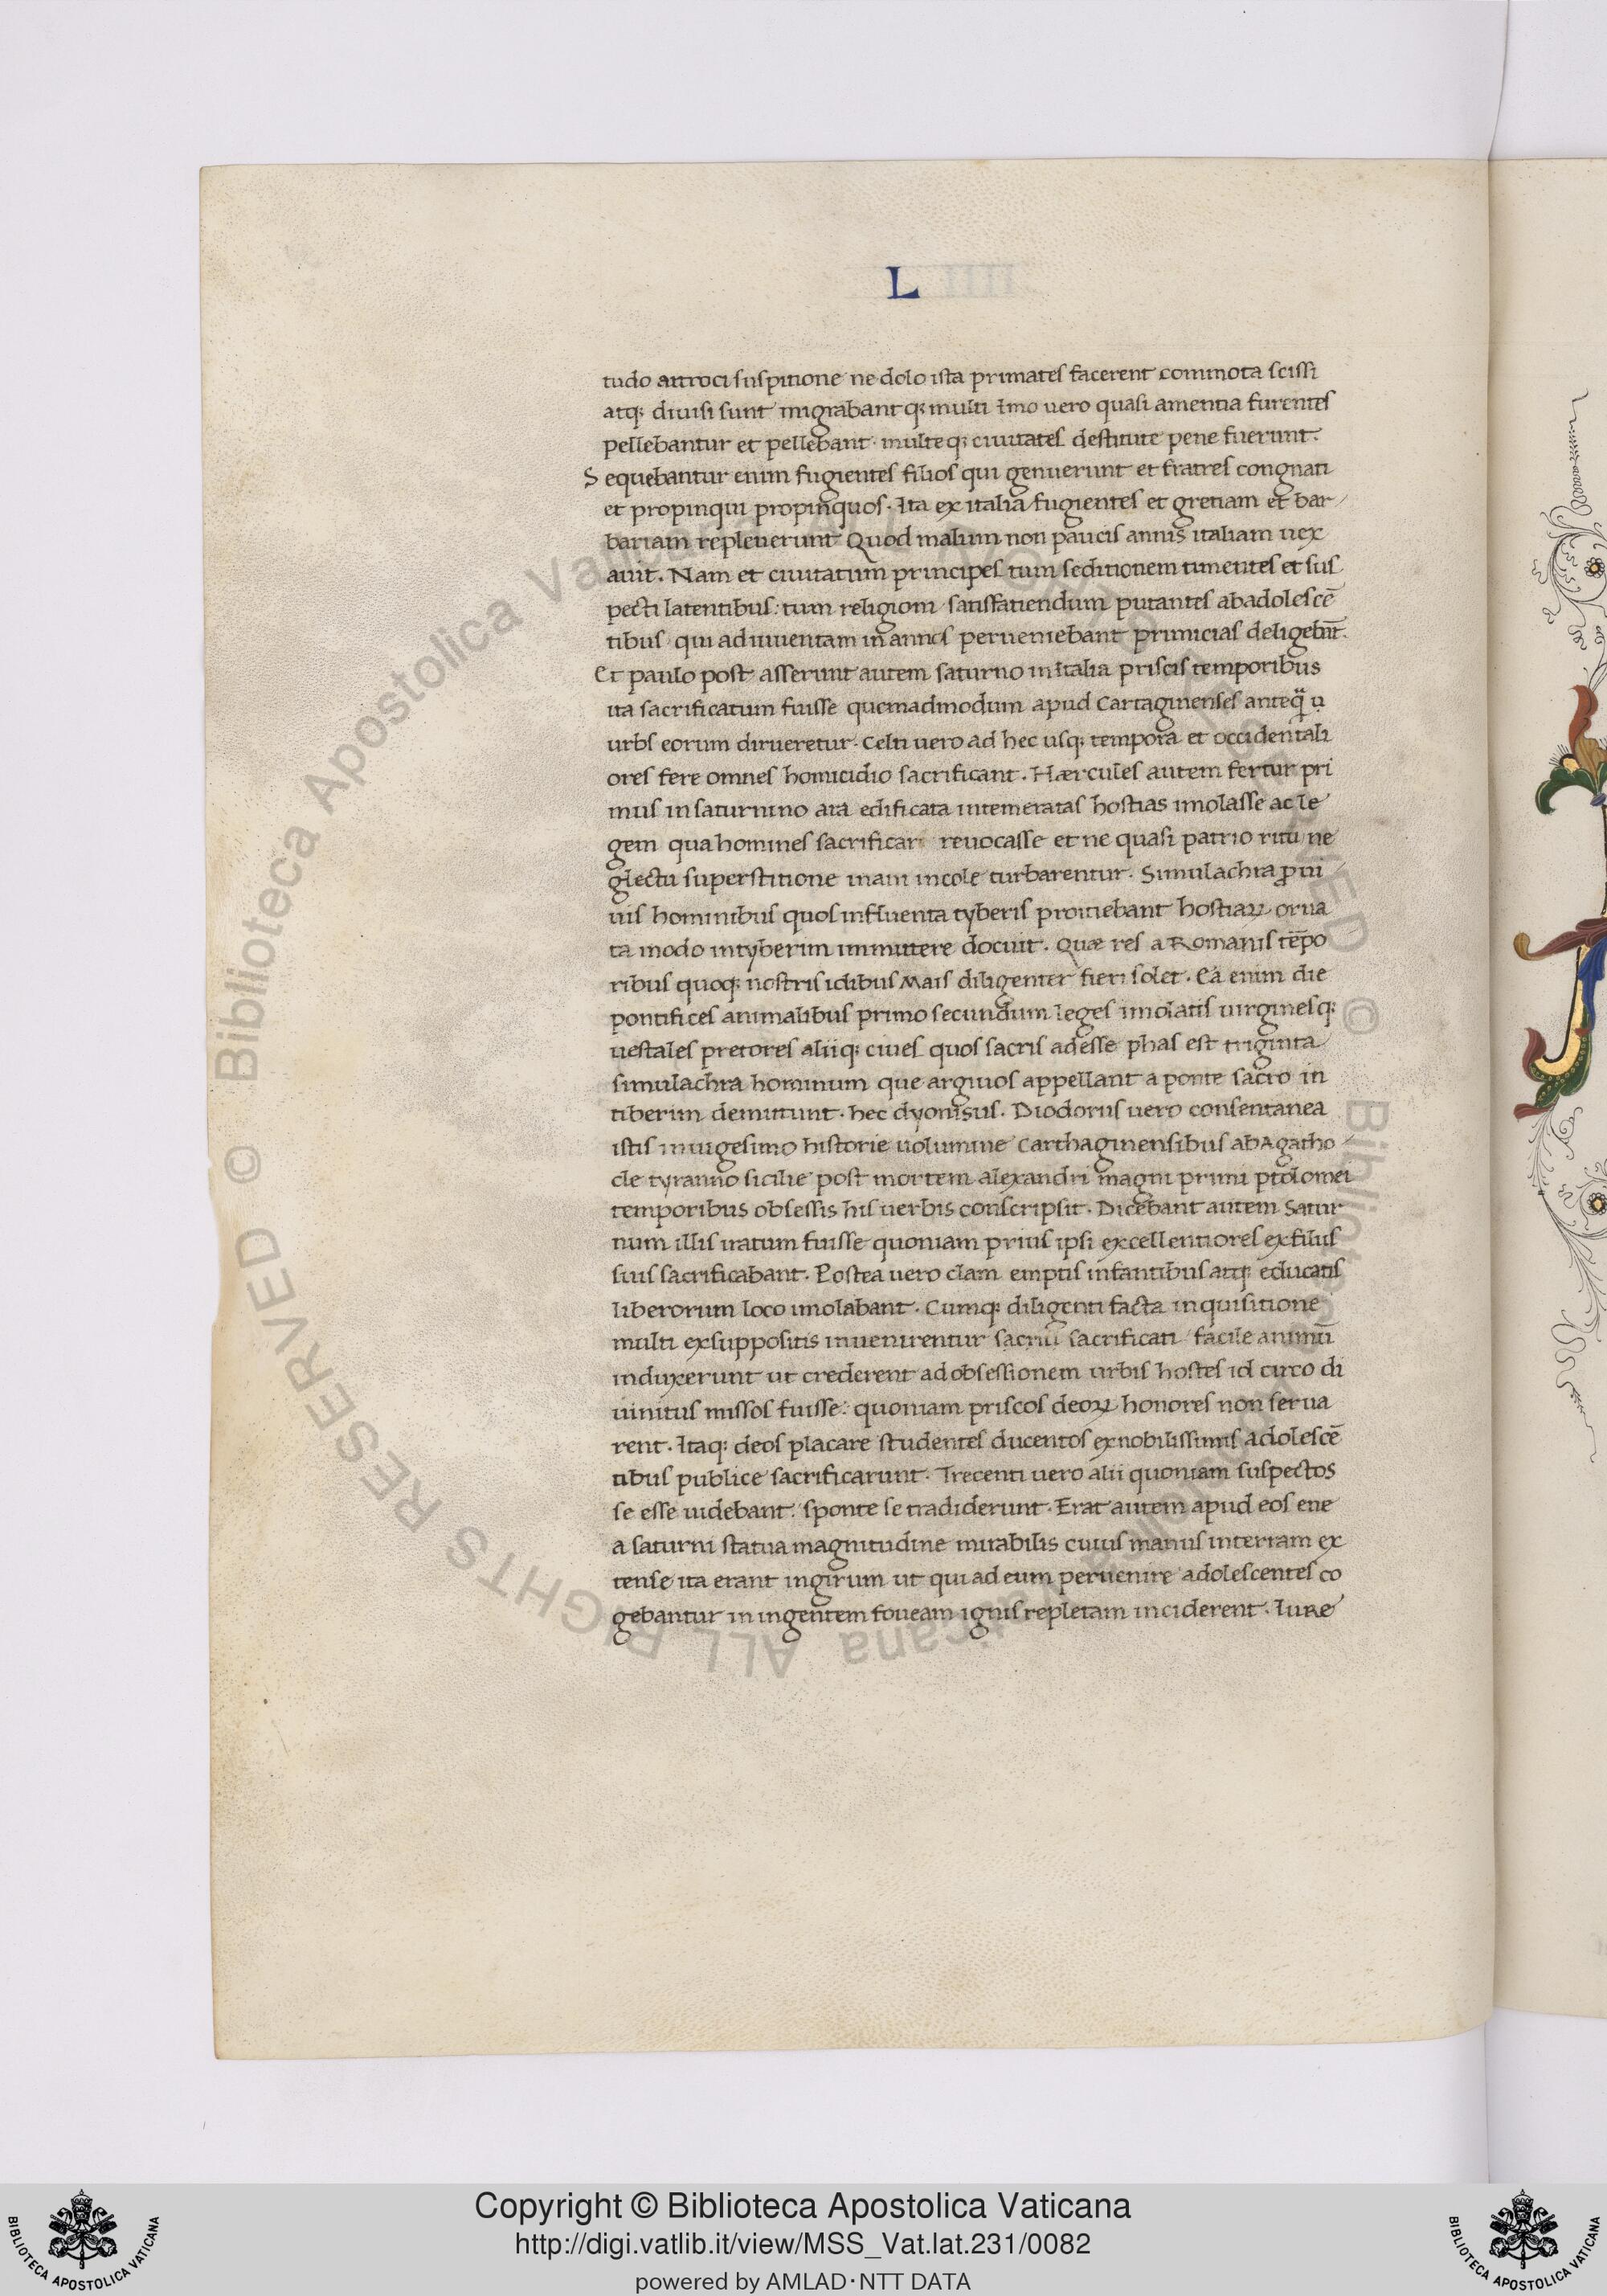 L
tudo atroci suspitione ne dolo ista primates facerent commota scissi
atq; diuisi sunt migrabantq; multi imo uero quasi amentia furentes
pellebantur et pellebant. multeq; ciuitates destitute pene fuerunt.
Sequebantur enim fugientes filios qui genuerunt et fratres congnati
et propinqui propinquos. Ita ex italia fugientes et gretiam et bar
bariam repleuerunt Quod malum non paucis annis italiam uex
auit. Nam et ciuitatum principes tum seditionem timentes et sus
pecti latentibus: tum religioni satisfatiendum putantes ab adolescē
tibus qui ad iuuentam in annos perueniebant primicias deligebāt.
Et paulo post asserunt autem saturno in italia priscis temporibus
ita sacrificatum fuisse quemadmodum apud Cartaginenses anteq̃ u
urbs eorum dirueretur. Celti uero ad hec usq; tempora et occidentali
ores fere omnes homicidio sacrificant. Hærcules autem fertur pri
mus in saturnino ara edificata intemeratas hostias imolasse ac le
gem qua homines sacrificari reuocasse et ne quasi patrio ritu ne
glectu superstitione inani incole turbarentur. Simulachra ꝓ ui
uis hominibus quos in fluenta tyberis proitiebant hostiaꝝ orna
ta modo in tyberim immittere docuit. Quæ res a Romanis tēpo
ribus quoq; nostris idibus Mais diligenter fieri solet. Ea enim die
pontifices animalibus primo secundum leges imolatis uirginesq;
uestales pretores aliiq; ciues quos sacris adesse phas est triginta
simulachra hominum que argiuos appellant a ponte sacro in
tiberim demittunt. hec dyonisus. Diodorus uero consentanea
istis in uigesimo historie uolumine Carthaginensibus ab Agatho
cle tyranno sicilie post mortem alexandri magni primi ptolomei
temporibus obsessis his uerbis conscripsit. Dicebant autem Satur
num illis iratum fuisse quoniam prius ipsi excellentiores ex filiis
suis sacrificabant. Postea uero clam emptis infantibus atq; educatis
liberorum loco imolabant. Cumq; diligenti facta inquisitione
multi ex suppositis inuenirentur sacrificati facile animū
induxerunt ut crederent ad obsessionem urbis hostes id circo di
uinitus missos fuisse: quoniam priscos deoꝝ honores non serua
rent. Itaq; deos placare studentes ducentos ex nobilissimis adolescē
tibus publice sacrificarunt. Trecenti uero alii quoniam suspectos
se esse uidebant: sponte se tradiderunt. Erat autem apud eos ene
a saturni statua magnitudine mirabilis cuius manus in terram ex
tense ita erant in girum ut qui ad eum peruenire adolescentes co
gebantur in ingentem foueam ignis repletam inciderent. Iure
Copyright © Biblioteca Apostolica Vaticana
http://digi.vatlib.it/view/MSS_Vat.lat.231/0082
powered by AMLAD·NTT DATA
BIBLIOTECA APOSTOLICA VATICANA
BIBLIOTECA APOSTOLICA VATICANA
© Biblioteca Apostolica Vaticana ALL RIGHTS RESERVED